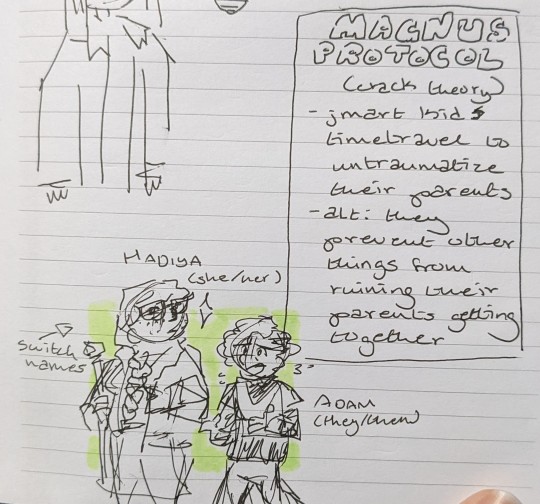 MAGNUS
PROTOCOL
(crack theory)
- jmart kids
timetravel to
untraumatize
their parents
- alt: they
prevent other
things from
ruining their
parents getting
together
HADIYA
(she/her)
switch
names
ADAM
(they/them)